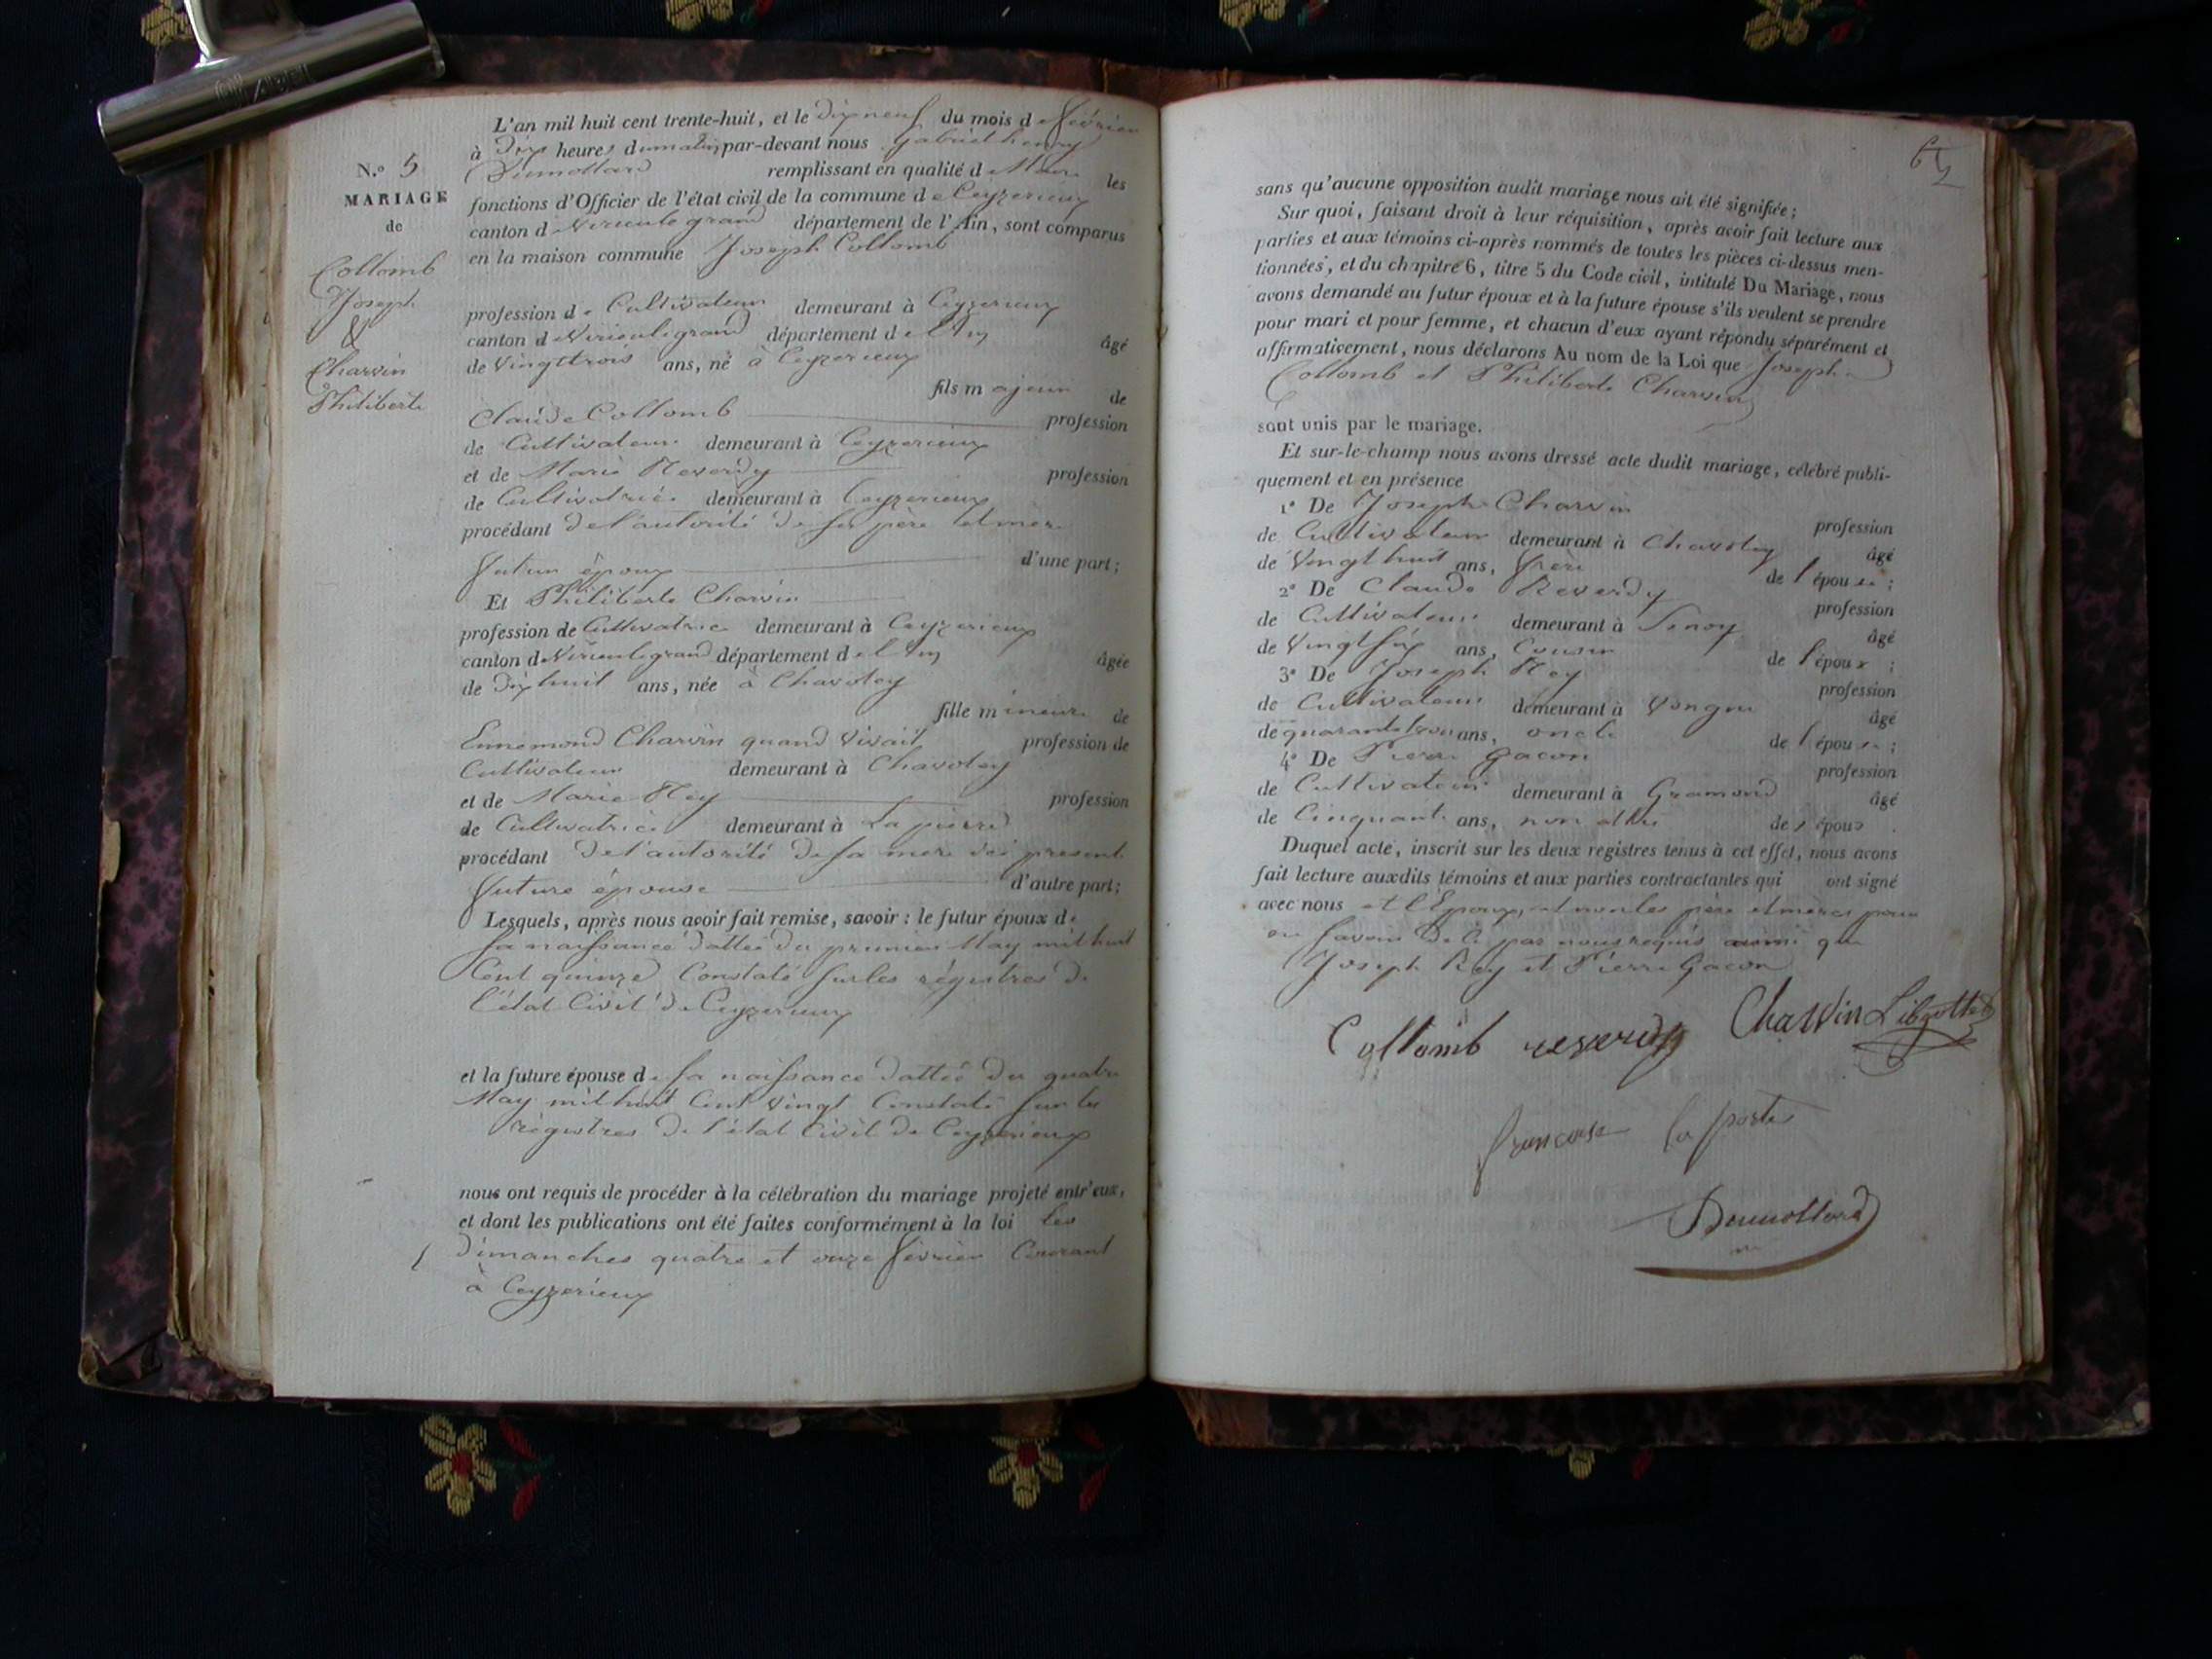 N.o 5
MARIAGE
de
Collomb
Joseph
&
Charvin
Philiberte
L'an mil huit cent trente-huit, et le dix neuf du mois de février
à Dix heures du matin par-devant nous Gabriel henry
Dumollard remplissant en qualité de Maire les
fonctions d'Officier de l'état civil de la commune de Ceyzerieux
canton de Virieu le grand département de l'Ain, sont comparus
en la maison commune Joseph Collomb
profession de Cultivateur demeurant à Ceyzerieux
canton de Virieu le grand département de l'Ain âgé
de Vingt trois ans, né à Ceyzerieux
fils majeur de
Claude Collomb profession
de Cultivateur demeurant à Ceyzerieux
et de Marie Reverdy profession
de Cultivatrice demeurant à Ceyzerieux
procédant de l'autorité de ses père et mère
futur époux d'une part;
Et Philiberte Charvin
profession de Cultivatrice demeurant à Ceyzerieux
canton de Virieu le grand département de l'Ain âgée
de Dix huit ans, née à Chavoley
fille mineure de
Ennemond Charvin quand Vivait profession de
Cultivateur demeurant à Chavoley
et de Marie Rey profession
de Cultivatrice demeurant à La pierre
procédant de l'autorité de sa mère ici present
future épouse d'autre part;
Lesquels, après nous avoir fait remise, savoir : le futur époux de
sa naissance dattée du premier May mil huit
Cent quinze Constaté sur les régistres de
l'état Civil de Ceyzerieux
et la future épouse de sa naissance dattée du quatre
May mil huit Cent vingt Constaté sur les
régistres de l'état Civil de Ceyzerieux
nous ont requis de procéder à la célébration du mariage projeté entr'eux,
et dont les publications ont été faites conformément à la loi les
dimanches quatre et onze février Courant
à Ceyzerieux
sans qu'aucune opposition audit mariage nous ait été signifiée;
Sur quoi, faisant droit à leur réquisition, après avoir fait lecture aux
parties et aux témoins ci-après nommés de toutes les pièces ci-dessus men-
tionnées, et du chapitre 6, titre 5 du Code civil, intitulé Du Mariage, nous
avons demandé au futur époux et à la future épouse s'ils veulent se prendre
pour mari et pour femme, et chacun d'eux ayant répondu séparément et
affirmativement, nous déclarons Au nom de la Loi que Joseph
Collomb et Philiberte Charvin
sont unis par le mariage.
Et sur-le-champ nous avons dressé acte dudit mariage, célébré publi-
quement et en présence
1° De Joseph Charvin profession
de Cultivateur demeurant à Chavoley âgé
de Vingt huit ans, frère de l'épouse;
2° De Claude Reverdy profession
de Cultivateur demeurant à Senoy âgé
de Vingt six ans, Cousin de l'époux;
3° De Joseph Rey profession
de Cultivateur demeurant à Vongne âgé
de quarante trois ans, oncle de l'épouse;
4° De Pierre Gacon profession
de Cultivateur demeurant à Gramond âgé
de Cinquante ans, non allié des époux
Duquel acte, inscrit sur les deux registres tenus à cet effet, nous avons
fait lecture auxdits témoins et aux parties contractantes qui ont signé
avec nous et l'Epoux, et non les père et mères pour
ne savoir de ce par nous requis ainsi que
Joseph Rey et Pierre Gacon
Collomb reverdy Charvin Libgottet
francoise la porte
Dumollard